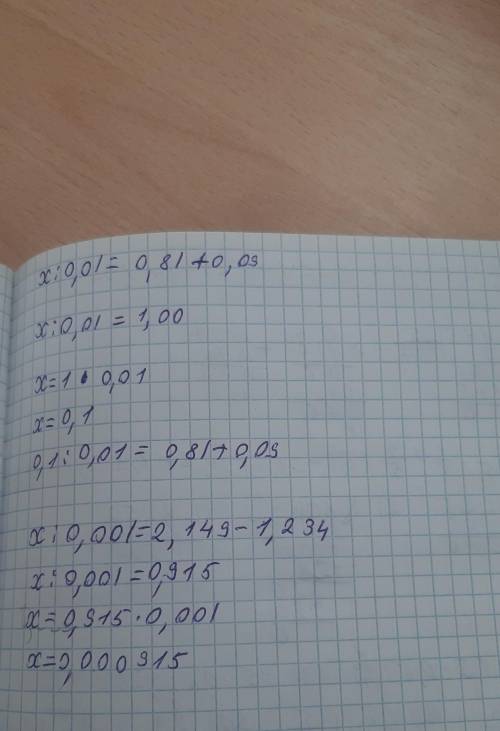 x:0,01= 0,81+0,09
x:0,01 = 1,00
x=1·0,01
x=0,1
0,1:0,01= 0,81+0,09
x:0,001=2,149-1,234
x:0,001=0,915
x=0,915·0,001
x=0,000915